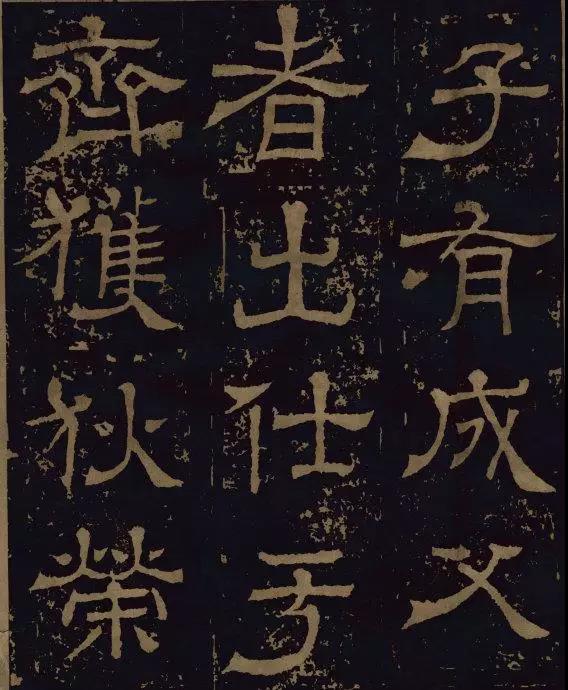 子有成父
者出仕于
齊獲狄榮